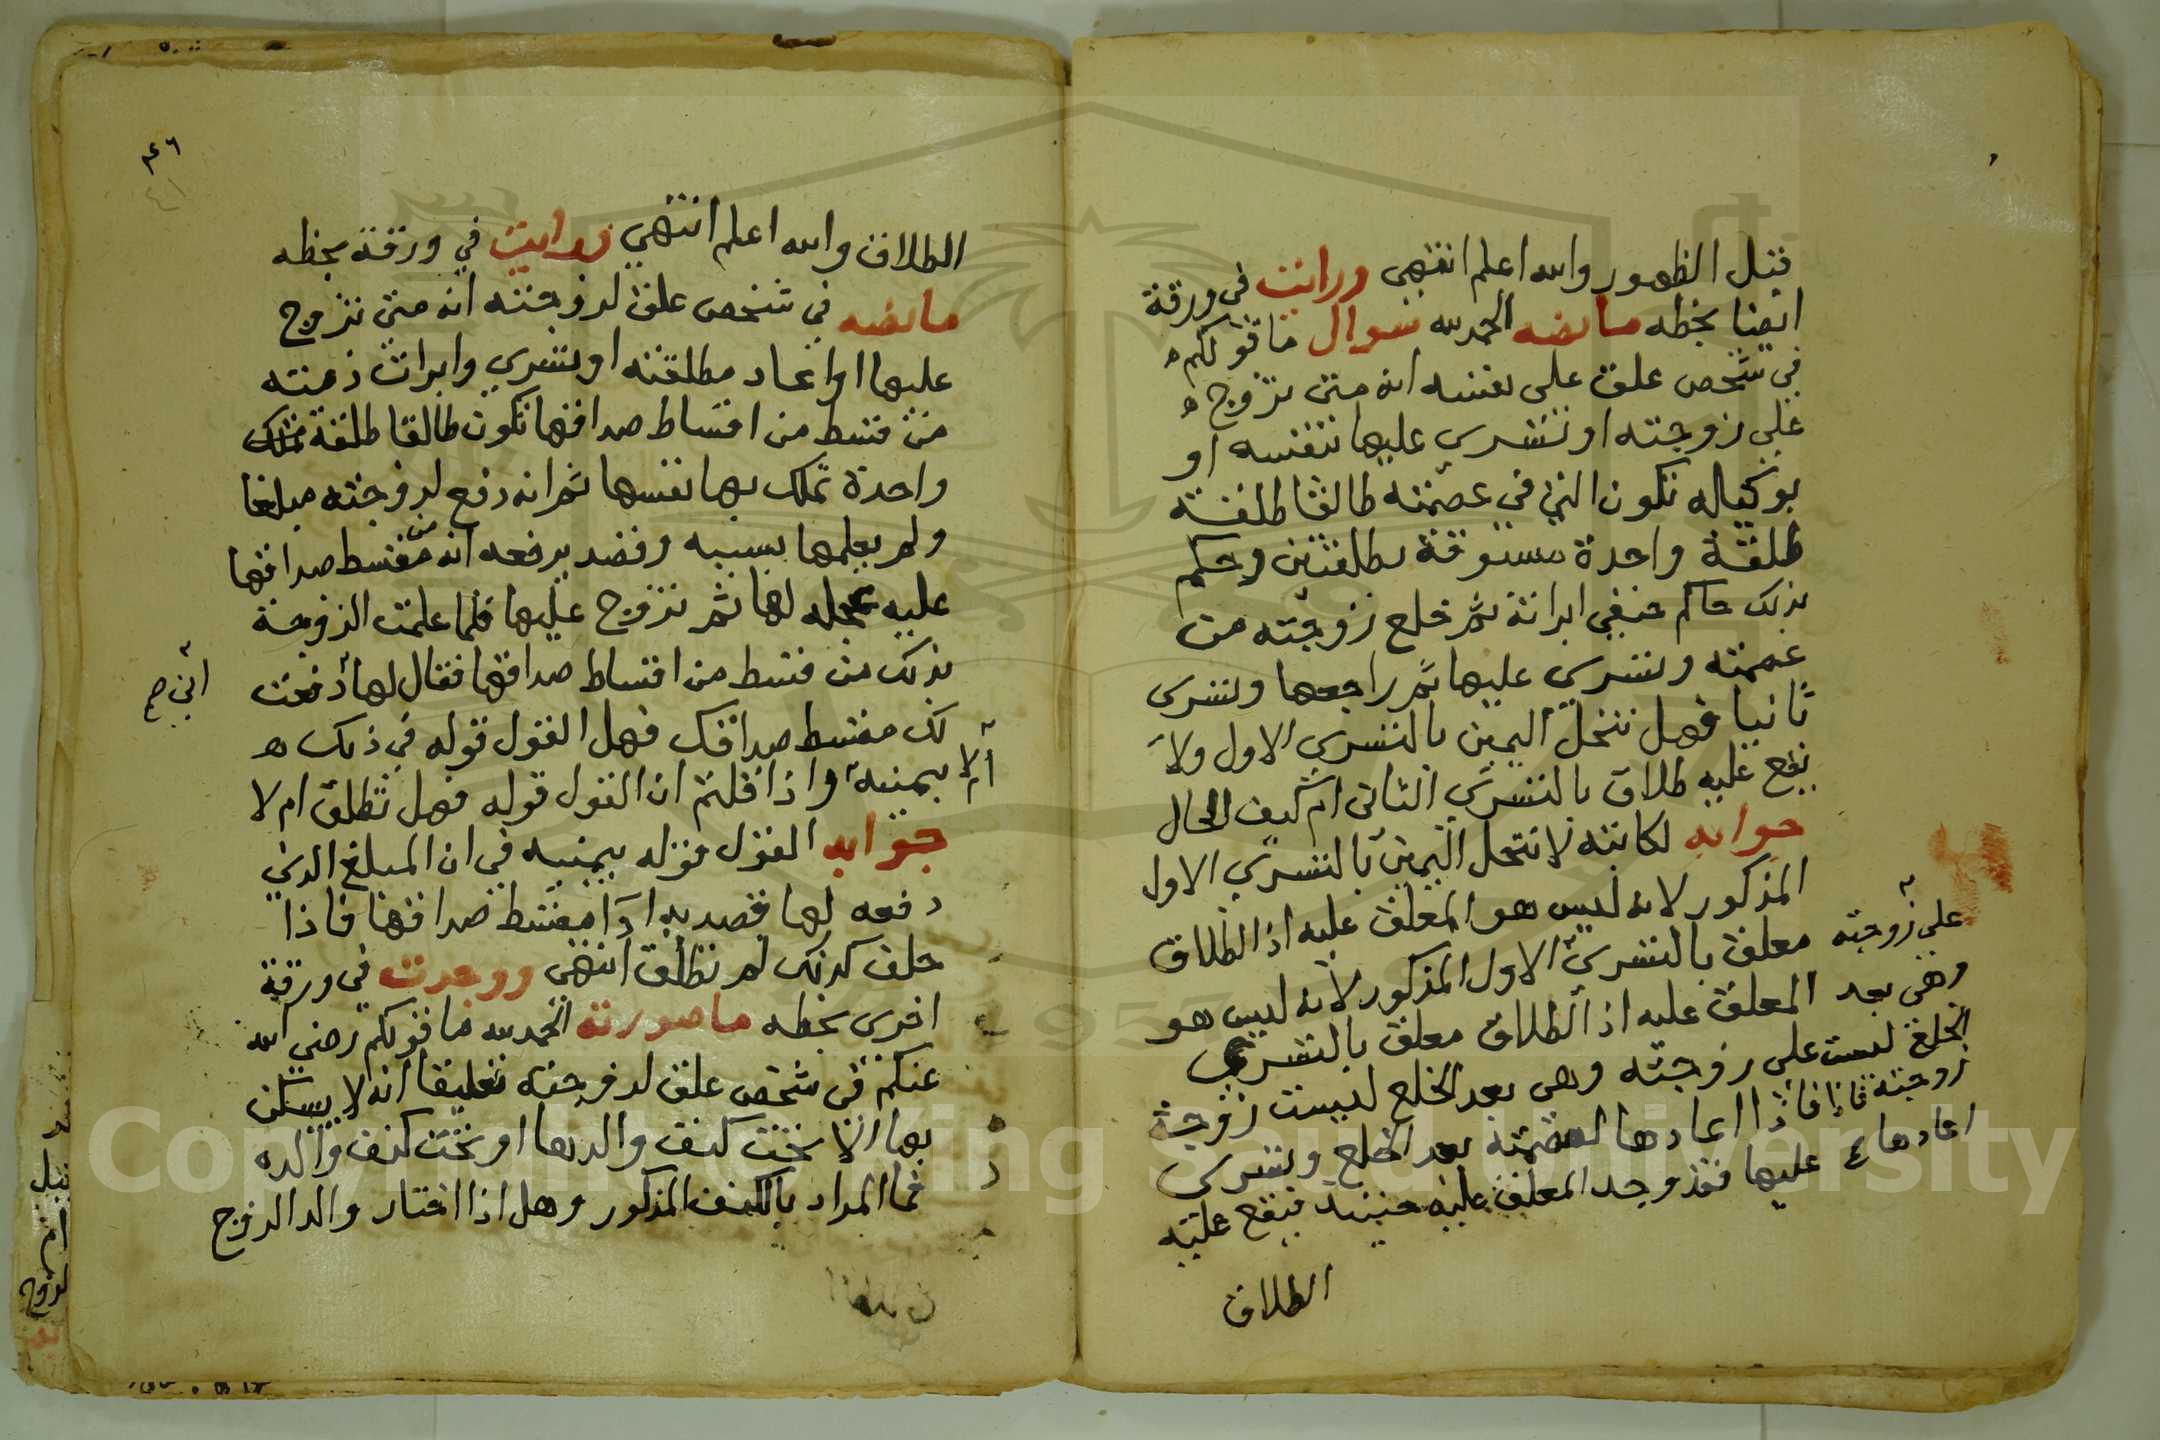 قبل الظهور والله اعلم انتهى ورايت في ورقة
ايضا بخطه ما نصه الحمد لله سوال ما قولكم
في شخص علق على نفسه انه متى تزوج
على زوجته او تسرى عليها بنفسه او
بوكيله تكون التي في عصمته طالقا طلقة
طلقة واحدة مسبوقة بطلقتين وحكم
بذلك حاكم حنفي ابرانة ثم خلع زوجته من
عصمته وتسرى عليها ثم راجعها وتسرى
ثانيا فهل تنحل اليمين بالتسري الاول ولا
يقع عليه طلاق بالتسري الثاني ام كيف الحال
جوابه لكاتبه لا تنحل اليمين بالتسري الاول
المذكور لانه ليس هو المعلق عليه اذ الطلاق
معلق بالتسري الاول المذكور لانه ليس هو
المعلق عليه اذ الطلاق معلق بالتسري
على زوجته وهي بعد الخلع ليست زوجة
فاذا اعادها لعصمته بعد الخلع وتسرى
عليها فقد وجد المعلق عليه حينئذ فيقع عليه
الطلاق
على زوجته
وهي بعد
الخلع ليست
زوجته فاذا
اعادها
٤٦
الطلاق والله اعلم انتهى ورايت في ورقة بخطه
ما نصه في شخص علق لزوجته انه متى تزوج
عليها او اعاد مطلقته او تسرى وابرات ذمته
من قسط من اقساط صداقها تكون طالقا طلقة تملك
واحدة تملك بها نفسها ثم انه دفع لزوجته مبلغا
ولم يعلمها بسببه وقصد بدفعه انه من مقسط صداقها
عليه عجله لها ثم تزوج عليها فلما علمت الزوجة
بذلك من قسط من اقساط صداقها فقال لها دفعت
لك مقسط صداقك فهل القول قوله في ذلك
بيمينه واذا قلتم ان القول قوله فهل تطلق ام لا
جوابه القول قوله بيمينه في ان المبلغ الذي
دفعه لها قصد به ادا مقسط صداقها فاذا
حلف كذلك لم تطلق انتهى ووجدت في ورقة
اخرى بخطه ما صورته الحمد لله ما قولكم رضي الله
عنكم في شخص علق لزوجته تعليقا انه لا يسكن
بها الا تحت كنف والدها او تحت كنف والده
فما المراد بالكنف المذكور وهل اذا اختار والد الزوج
ام لا
Copyright © King Saud University
1957